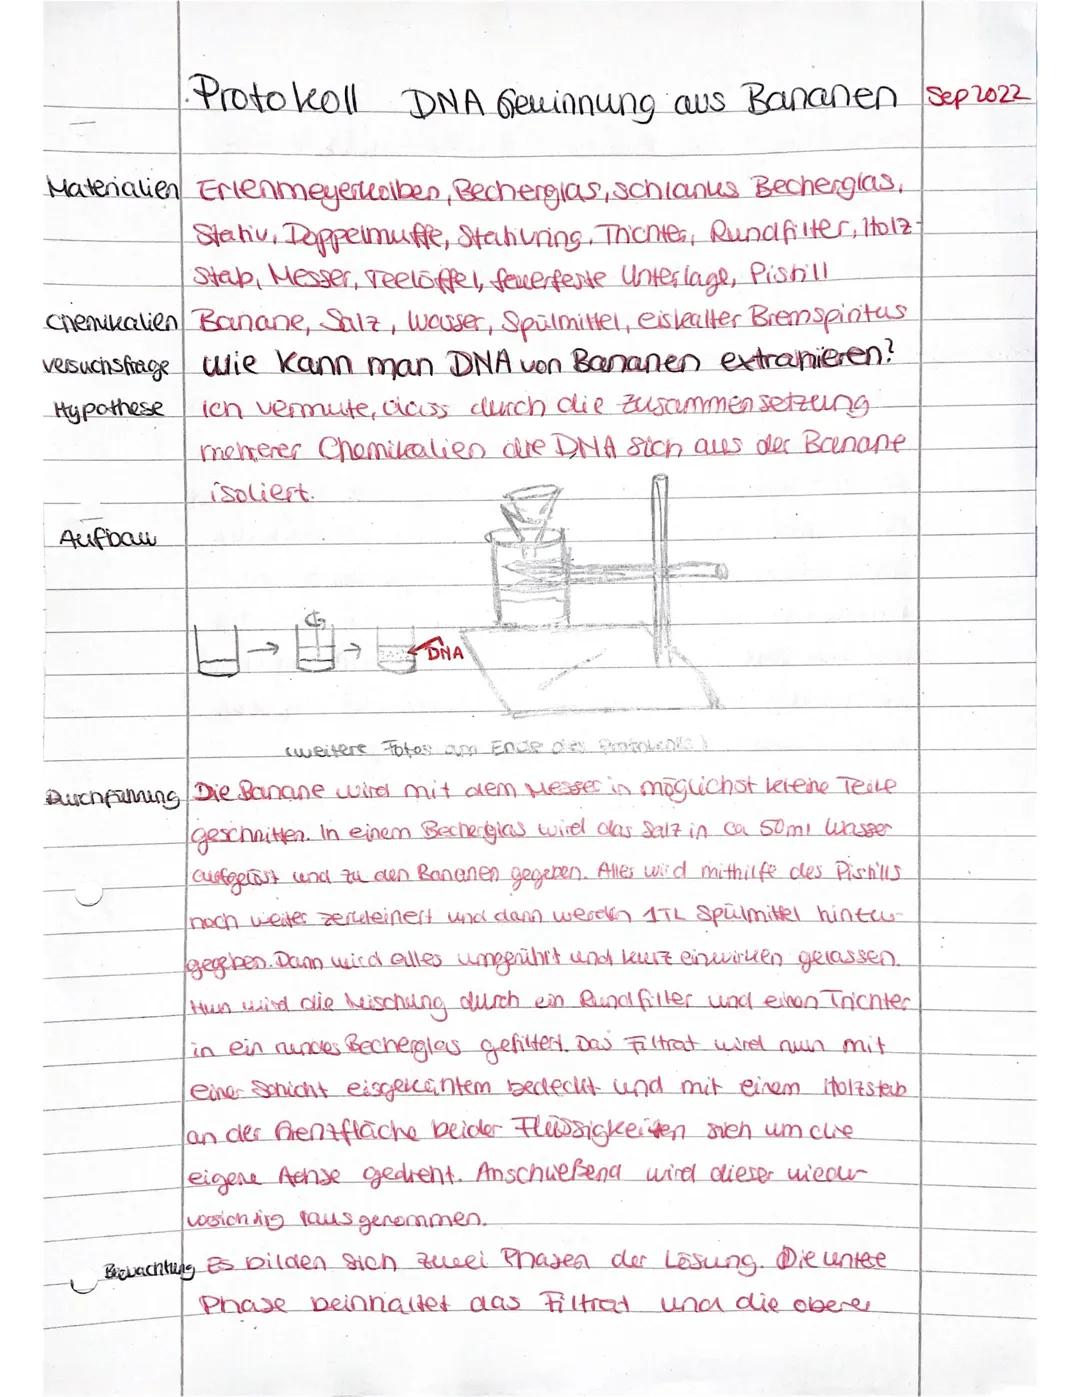 Protokoll DNA Gewinnung aus Bananen Sep 2022
Materialien Erlenmeyerkolben, Becherglas, schlankes Becherglas,
Stativ, Doppelmuffe, Stativring, Trichter, Rundfilter, Holz-
stab, Messer, Teelöffel, feuerfeste Unterlage, Pistill
Chemikalien Banane, Salz, Wasser, Spülmittel, eiskalter Brennspiritus
Versuchsfrage Wie kann man DNA von Bananen extrahieren?
Hypothese ich vermute, dass durch die Zusammensetzung
mehrerer Chemikalien die DNA sich aus der Banane
isoliert.
Aufbau
DNA
(weitere Fotos am Ende des Protokolls)
Durchführung Die Banane wird mit dem Messer in möglichst kleine Teile
geschnitten. In einem Becherglas wird das Salz in ca 50ml Wasser
aufgelöst und zu den Bananen gegeben. Alles wird mithilfe des Pistills
noch weiter zerkleinert und dann werden 1TL Spülmittel hinzu-
gegeben. Dann wird alles umgerührt und kurz einwirken gelassen.
Nun wird die Mischung durch ein Rundfilter und einen Trichter
in ein rundes Becherglas gefiltert. Das Filtrat wird nun mit
einer Schicht bedeckt und mit einem Holzstab
an der Grenzfläche beider Flüssigkeiten sich um die
eigene Achse gedreht. Anschließend wird dieser wieder
vorsichtig rausgenommen.
Beobachtung Es bilden sich zwei Phasen der Lösung. Die untere
Phase beinhaltet das Filtrat und die obere